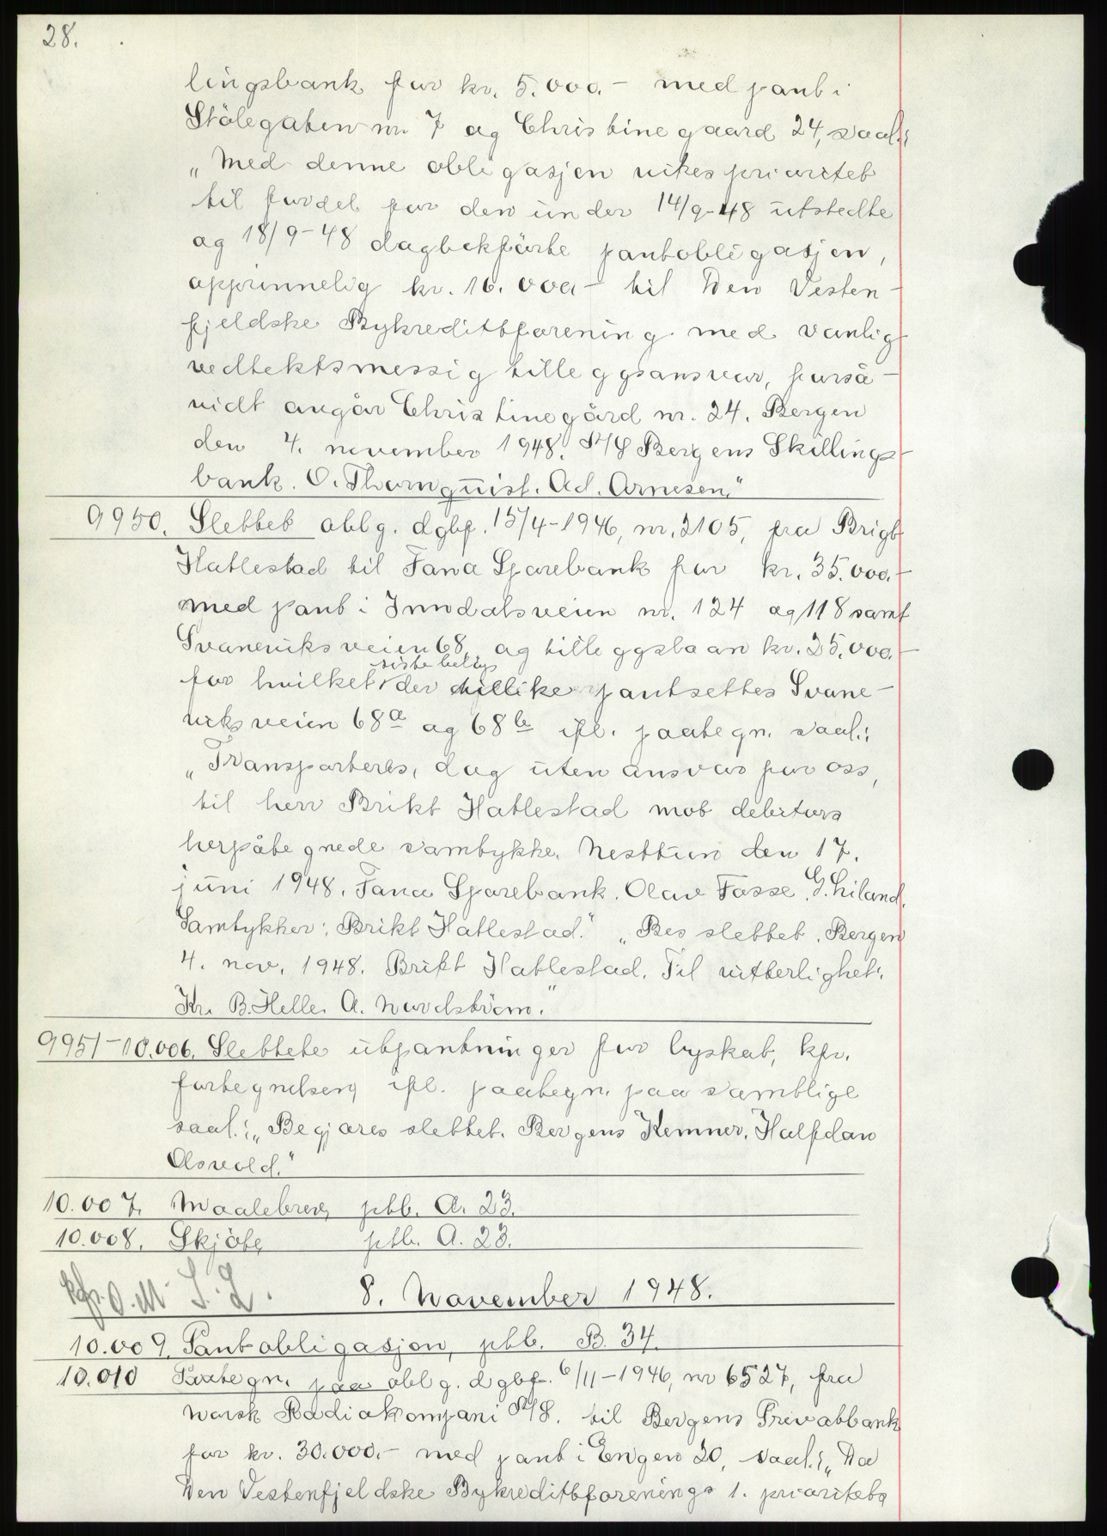 28.
lingsbank for kr. 5.000.- med pant i
Stölegaten nr. 7 og Christinegaard 24, saal.:
„Med denne obligasjon vikes prioritet
til fordel for den under 14/9-48 utstedte
og 18/9-48 dagbokförte pantobligasjon,
opprinnelig kr. 16.000- til Den Vesten-
fjeldske Bykreditforening med vanlig
vedtektsmessig tilleggsansvar, forså-
vidt angår Christinegård nr. 24. Bergen
den 4. november 1948. A/S Bergens Skillings-
bank. O. Thornquist. Ad. Arnesen."
9950. Slettet oblg. dgbf. 15/4-1946, nr. 2105, fra Brigt
Hatlestad til Fana Sparebank for kr. 35.000.-
med pant i Inndalsveien nr. 124 og 118 samt
Svaneviksveien 68, og tilleggslaan kr. 25.000.-
for hvilket siste belöp der tillike pantsettes Svane-
viksveien 68a og 68b ifl. paategn. saal.:
„Transporteres, dog uten ansvar for oss,
til herr Brikt Hatlestad mot debitors
herpåtegnede samtykke. Nesttun den 17.
juni 1948. Fana Sparebank. Olav Fosse. G. Liland.
Samtykker: Brikt Hatlestad." „Bes slettet. Bergen
4. nov. 1948. Brikt Hatlestad. Til vitterlighet:
Kr. B. Helle. A. Nordström."
9951-10.006. Slettete utpantninger for byskat, kfr.
fortegnelsen, ifl. paategn. paa samtlige
saal.: „Begjæres slettet. Bergens Kemner. Halfdan
Osvold."
10.007. Maalebrev, ptb. A. 23.
10.008. Skjöte, ptb. A. 23.
8. November 1948.
10.009. Pantobligasjon, ptb. B. 34.
10.010 Paategn. paa oblg. dgbf. 6/11-1946, nr 6527, fra
Norsk Radiokompani A/S. til Bergens Privatbank
for kr. 30.000.- med pant i Engen 20, saal.: „Da
Den Vestenfjeldske Bykreditforenings 1. prioritets